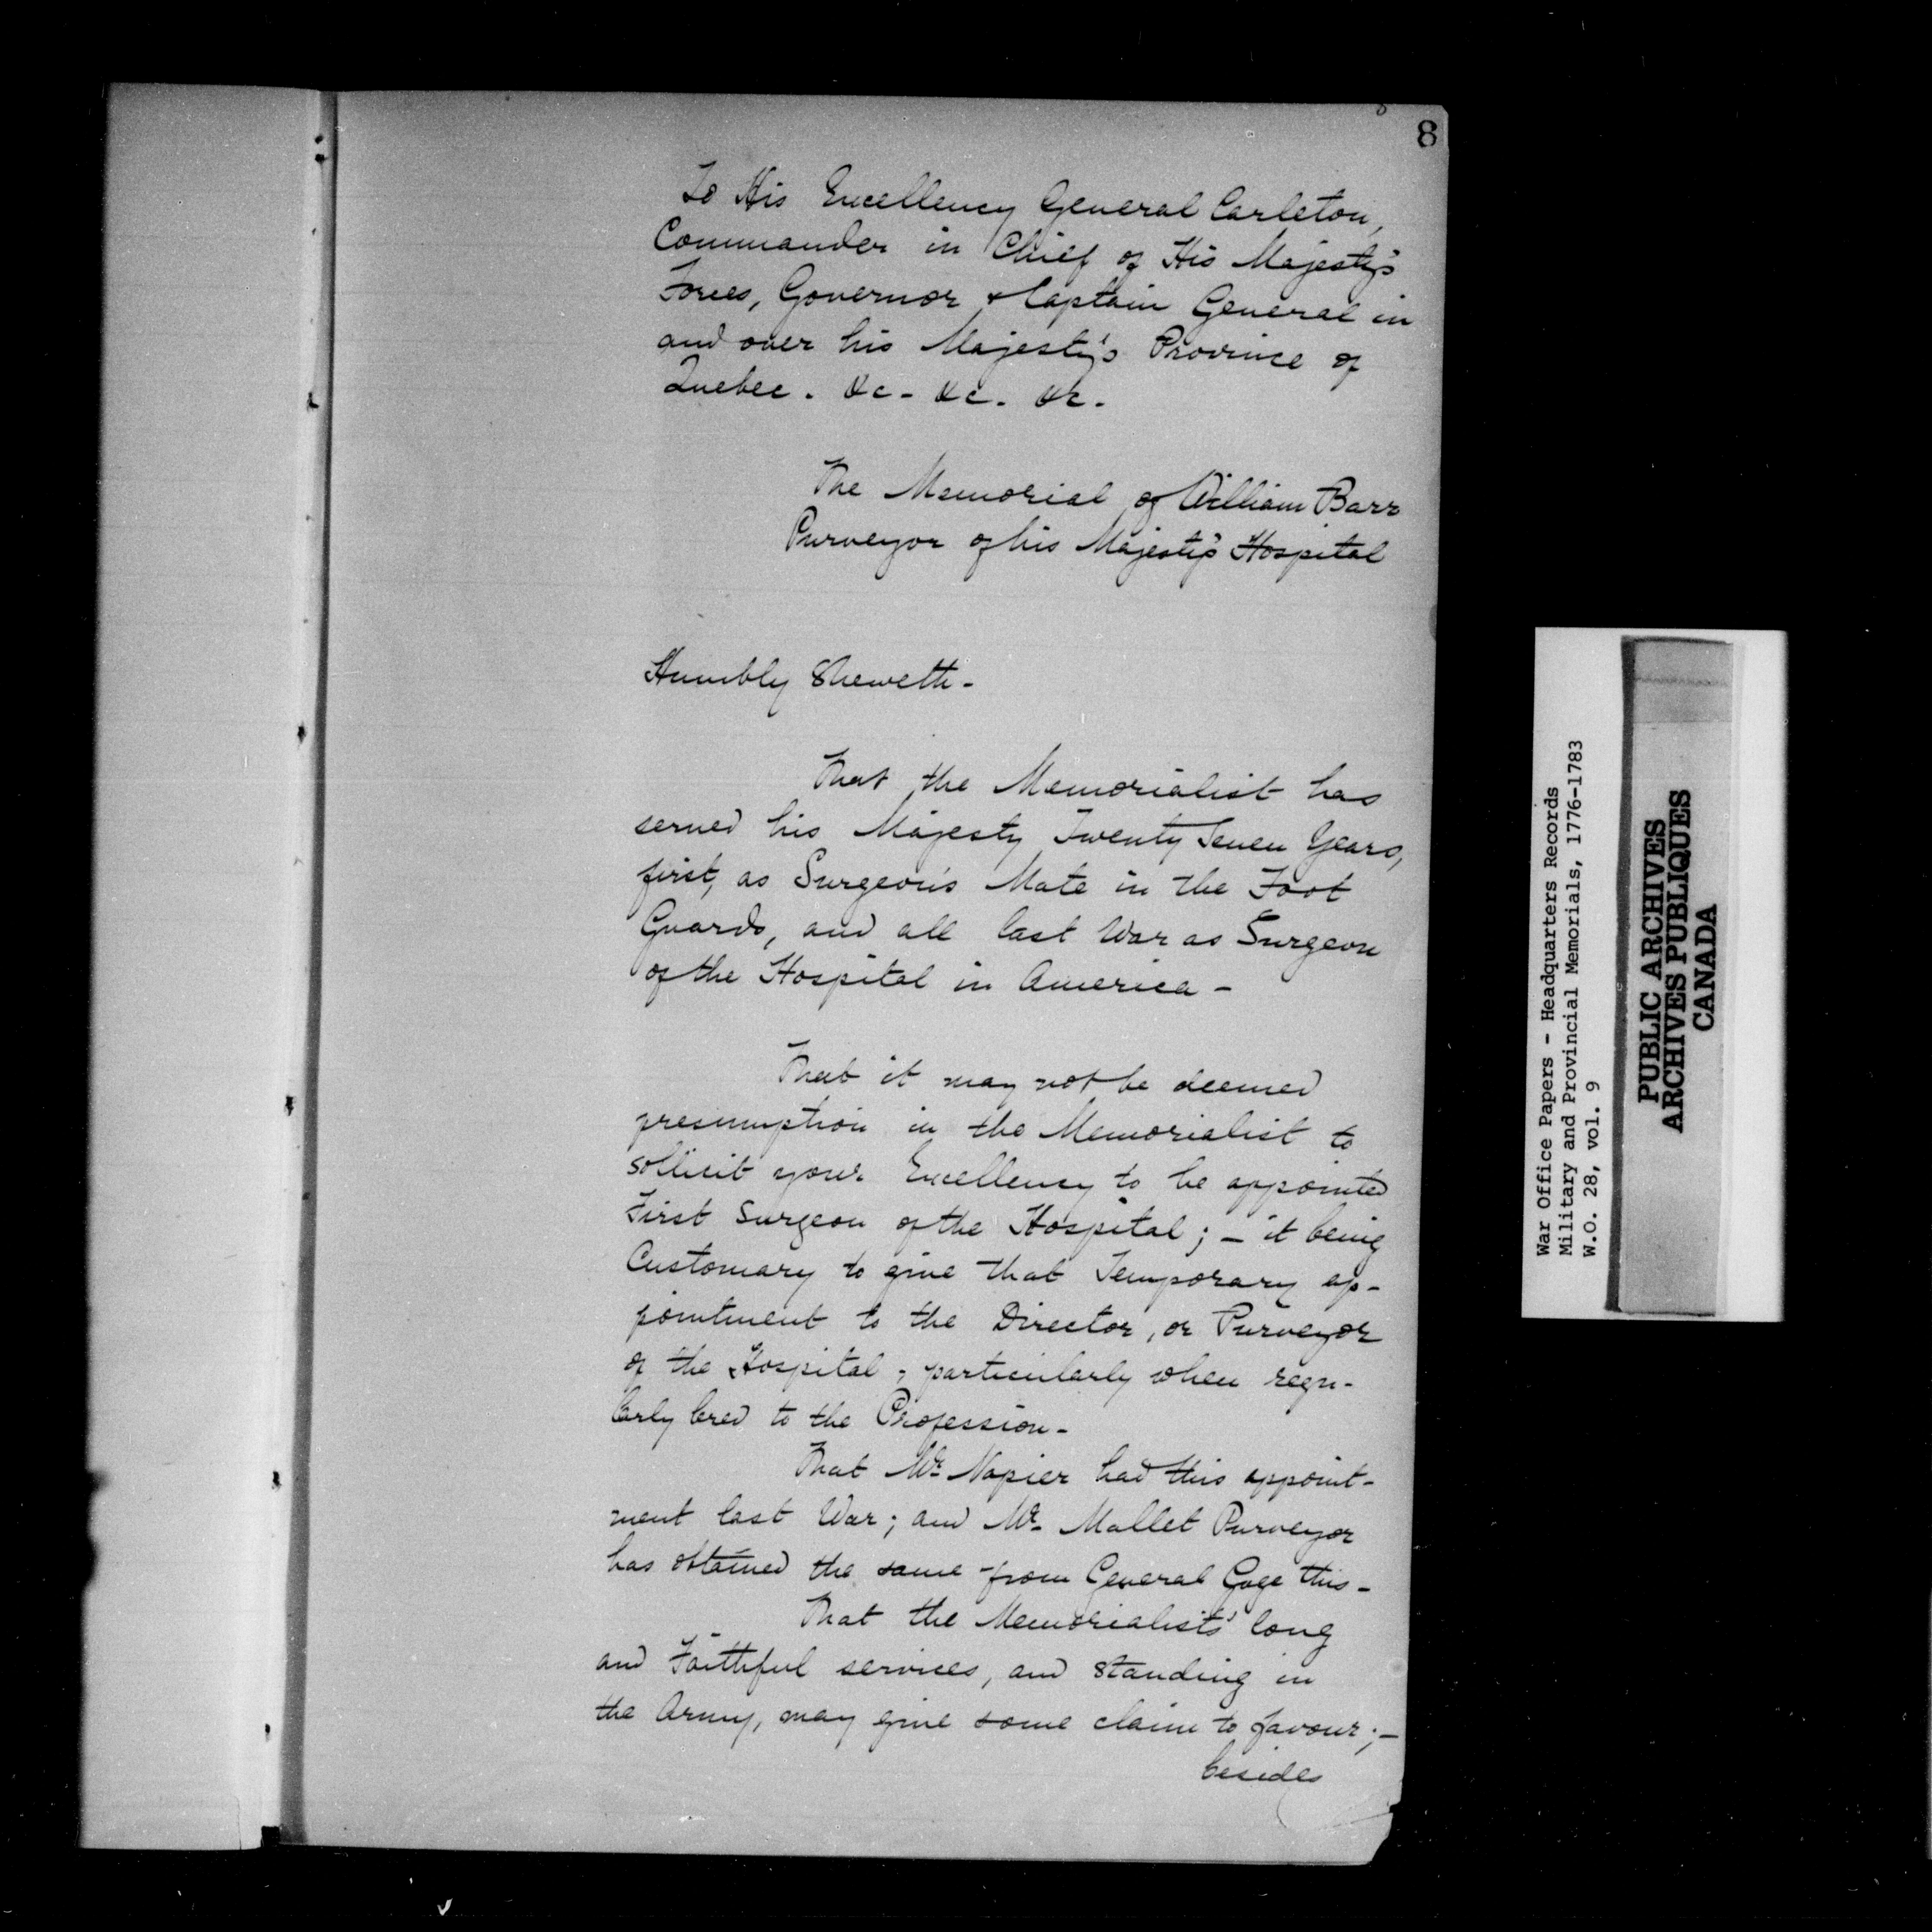 8
To His Excellency General Carleton,
Commander in Chief of His Majesty's
Forces, Governor & Captain General in
and over his Majesty's Province of
Quebec. &c - &c. &c.
The Memorial of William Barr
Purveyor of his Majesty's Hospital
Humbly Sheweth -
That the Memorialist has
served his Majesty Twenty Seven Years,
first, as Surgeon's Mate in the Foot
Guards, and all last War as Surgeon
of the Hospital in America -
That it may not be deemed
presumption in the Memorialist to
sollicit your Excellency to be appointed
First Surgeon of the Hospital; - it being
Customary to give that Temporary ap-
pointment to the Director, or Purveyor
of the Hospital, particularly when regu-
larly bred to the Profession -
That Mr. Napier had this appoint-
ment last War; and Mr. Mallet Purveyor
has obtained the same from General Gage this -
That the Memorialists' long
and Faithful services, and standing in
the Army, may give some claim to favour; -
besides
War Office Papers - Headquarters Records
Military and Provincial Memorials, 1776-1783
W.O. 28, vol. 9
PUBLIC ARCHIVES
ARCHIVES PUBLIQUES
CANADA